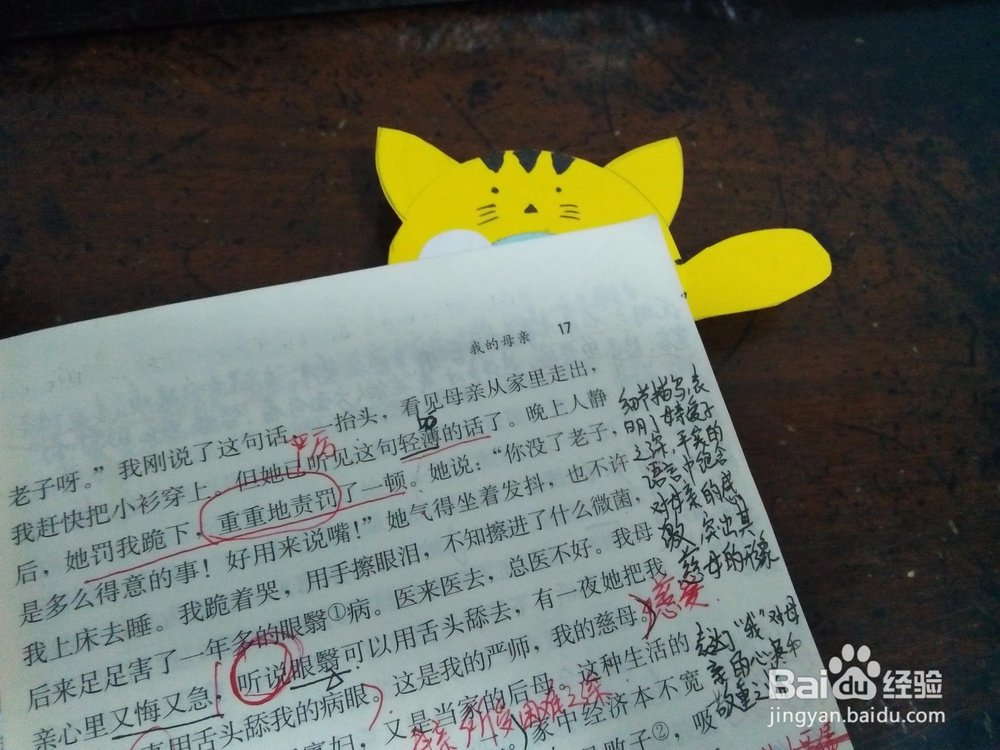 我的母亲 17
老子呀。”我刚说了这句话，一抬头，看见母亲从家里走出，
我赶快把小衫穿上。但她已听见这句轻薄的话了。晚上人静
后，她罚我跪下，重重地责罚了一顿。她说：“你没了老子，
是多么得意的事！好用来说嘴！”她气得坐着发抖，也不许
我上床去睡。我跪着哭，用手擦眼泪，不知擦进了什么微菌，
后来足足害了一年多的眼翳①病。医来医去，总医不好。我母
亲心里又悔又急，听说眼翳可以用舌头舔去，有一夜她把我
真用舌头舔我的病眼。这是我的严师，我的慈母。
寡妇，又是当家的后母。这种生活的
家中经济本不宽
败子②，吸
病
细节描写，表
明了她持爱子
之深，平实的
语言中饱含
对母亲的感
激，突出其
慈母的形象
慈爱
表达了“我”对母
亲的心疼和
敬重之
Baidu经验
jingyan.baidu.com